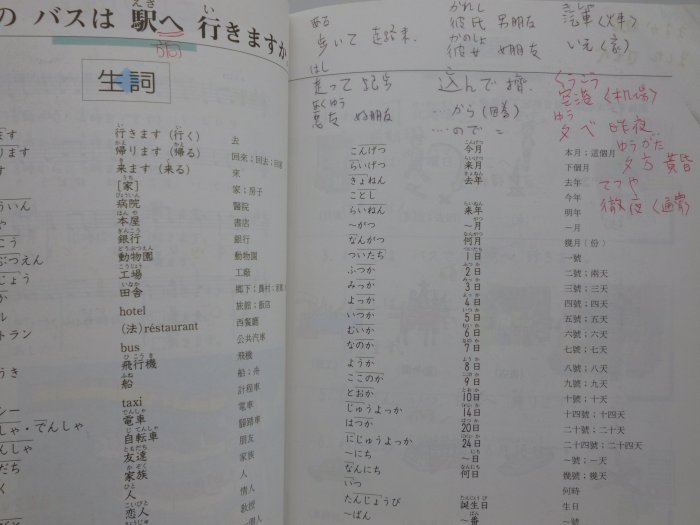 の バスは 駅へ 行きますか
えき
い
生詞
ます 行きます (行く) 去
ります 帰ります (帰る) 回來；回去；回家
ます 来ます (来る) 來
[家] 家；房子
ういん 病院 醫院
や 本屋 書店
こう 銀行 銀行
ぶつえん 動物園 動物園
じょう 工場 工廠
か 田舎
ル hotel 旅館；飯店
トラン (法) réstaurant 西餐廳
bus 公共汽車
うき 飛行機 飛機
船 船；舟
シー taxi 計程車
しゃ・でんしゃ 電車 電車
しゃ 自転車 腳踏車
だち 友達 朋友
家族 家族
人 人
恋人 情人
教授
歩いて 走路來
はし
走って 跑步
悪友 好朋友
かれし
彼氏 男朋友
かのじょ
彼女 女朋友
込んで 擠
…から (因為)
…ので
汽車 (火車)
いえ (家)
くうこう
空港 (机場)
ゆう
夕べ 昨夜
ゆうがた
夕方 黄昏
てつや
こんげつ 今月 本月；這個月
らいげつ 来月 下個月
きょねん 去年 去年
ことし 今年
らいねん 来年 明年
～がつ ～月 一月
なんがつ 何月 幾月 (份)
ついたち 1日 一號
ふつか 2日 二號；兩天
みっか 3日 三號；三天
よっか 4日 四號；四天
いつか 5日 五號；五天
むいか 6日 六號；六天
なのか 7日 七號；七天
ようか 8日 八號；八天
ここのか 9日 九號；九天
とおか 10日 十號；十天
じゅうよっか 14日 十四號；十四天
はつか 20日 二十號；二十天
にじゅうよっか 24日 二十四號；二十四天
～にち ～日 ～號；～天
なんにち 何日 幾號；幾天
いつ 何時
たんじょうび 誕生日 生日
～ばん ～番